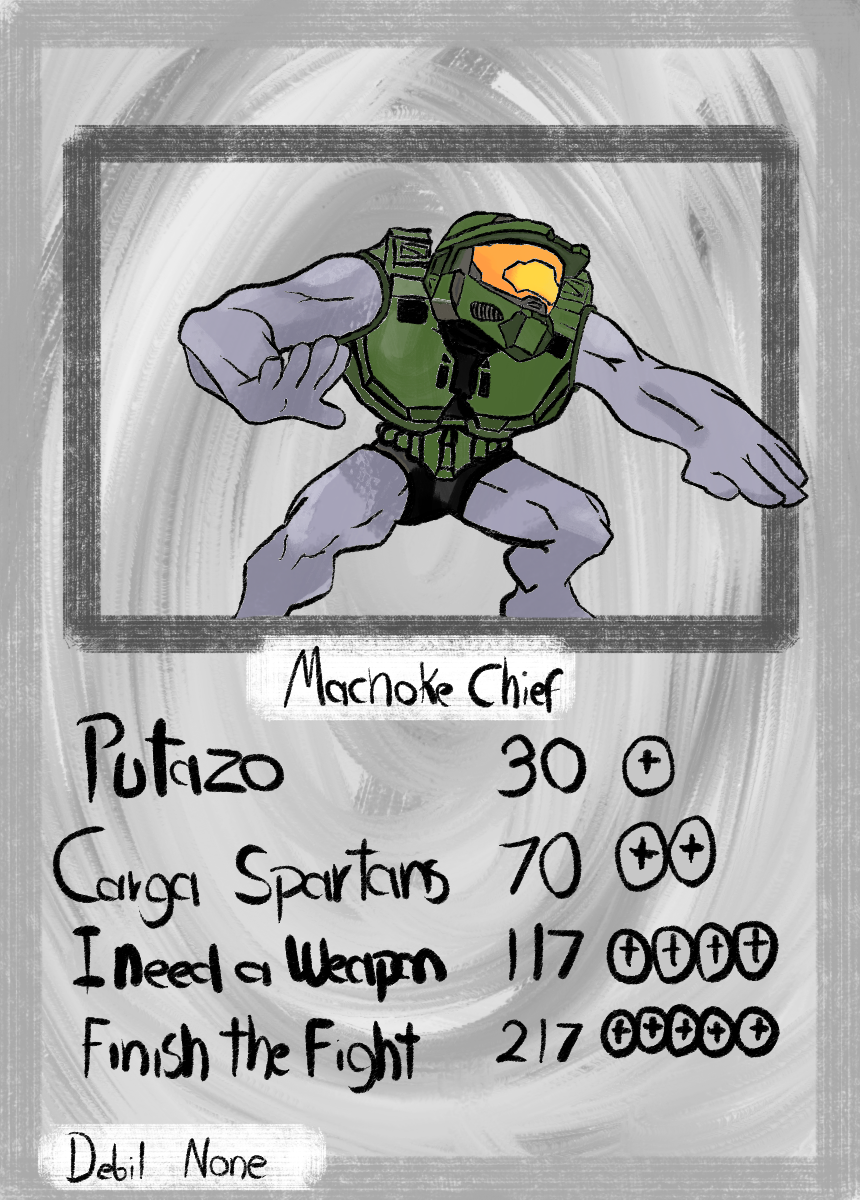 Machoke Chief
Putazo 30
Carga Spartans 70
I need a Weapon 117
Finish the Fight 217
Debil None